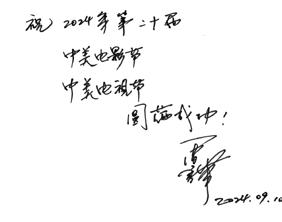 祝 2024年第二十届
中美电影节
中美电视节
圆满成功！
2024.09.10